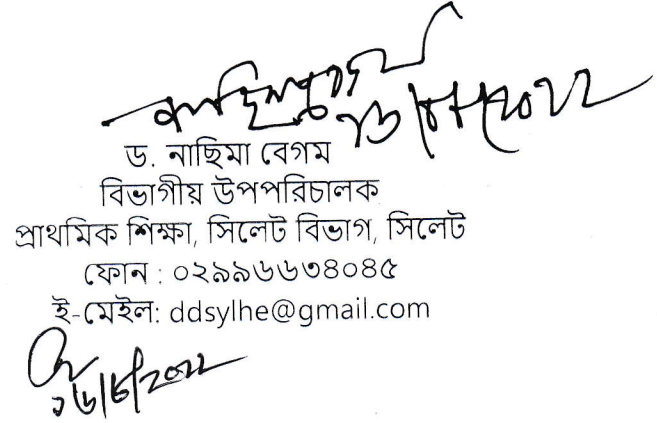 ড. নাছিমা বেগম
বিভাগীয় উপপরিচালক
প্রাথমিক শিক্ষা, সিলেট বিভাগ, সিলেট
ফোন : ০২৯৯৬৬৩৪০৪৫
ই-মেইল: ddsylhe@gmail.com
১৬/৮/২০২২